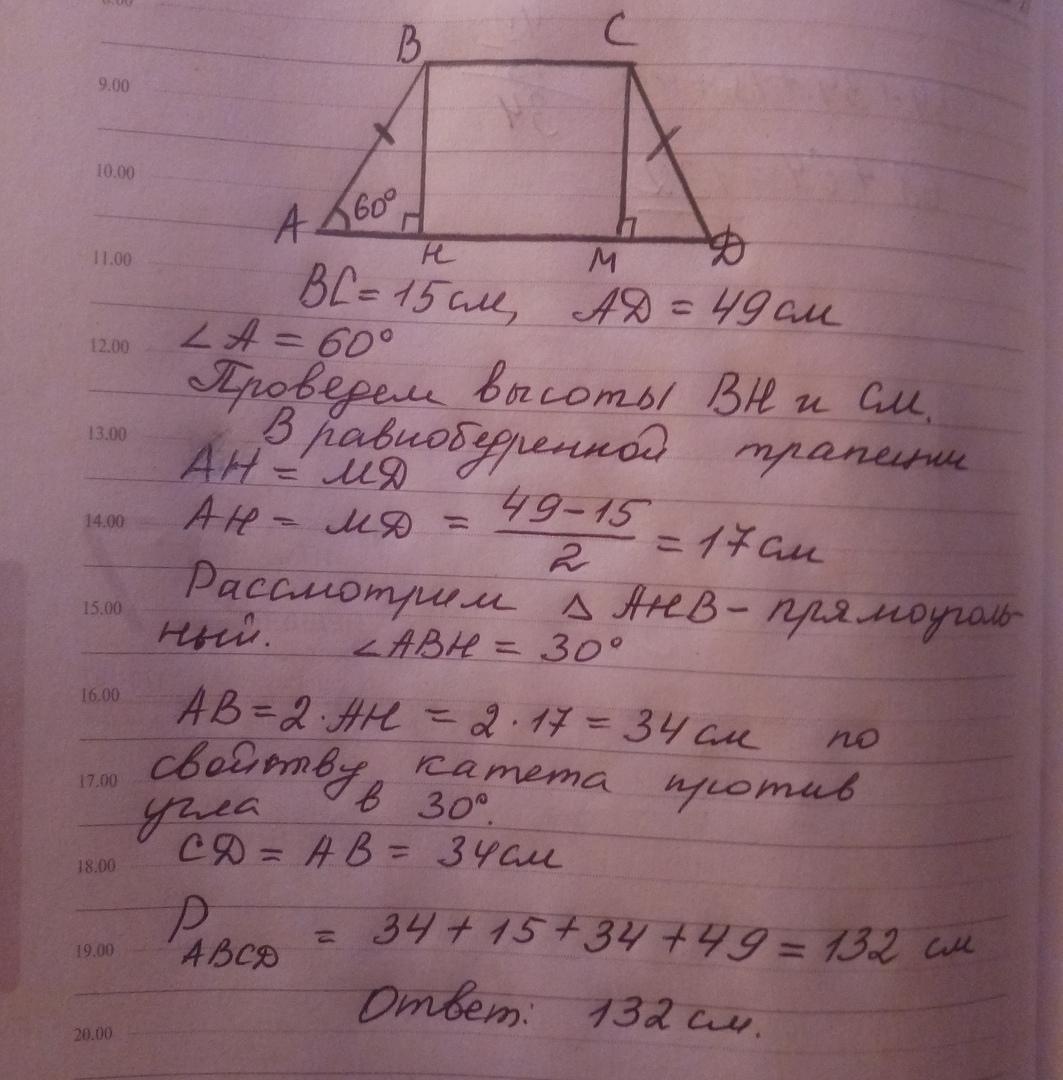 B C
9.00
10.00
A 60° H M D
11.00
BC = 15 см, AD = 49 см
∠A = 60°
12.00
Проведем высоты BH и CM.
13.00
В равнобедренной трапеции
AH = MD
14.00
AH = MD = (49-15)/2 = 17 см
Рассмотрим △ AHB - прямоуголь-
15.00
ный. ∠ABH = 30°
16.00
AB = 2 · AH = 2 · 17 = 34 см по
свойству катета против
17.00
угла в 30°.
CD = AB = 34 см
18.00
P ABCD = 34 + 15 + 34 + 49 = 132 см
19.00
Ответ: 132 см.
20.00